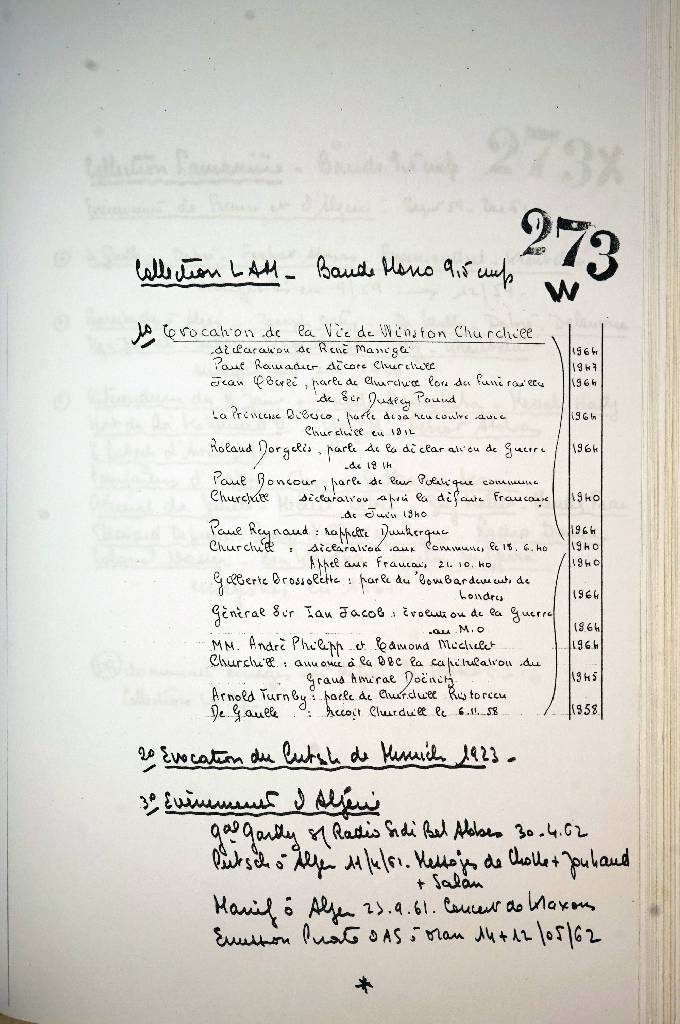 273
W
Collection LAM - Bande Mono 9,5 cmp
1o Evocation de la Vie de Winston Churchill
déclaration de René Massigli 1964
Paul Ramadier décore Churchill 1947
Jean Oberlé, parle de Churchill lors des funérailles 1964
de Sir Dudley Pound
La Princesse Bibesco, parle de sa rencontre avec 1964
Churchill en 1912
Roland Dorgelès, parle de la déclaration de Guerre 1964
de 1914
Paul Boncour, parle de leur Politique commune
Churchill déclaration après la défaite Française 1940
de Juin 1940
Paul Reynaud : rappelle Dunkerque 1964
Churchill : déclaration aux Communes le 18.6.40 1940
Appel aux Français 21.10.40 1940
Gilberte Brossolette : parle du bombardements de
Londres 1964
Général Sir Ian Jacob : évolution de la Guerre
au M.O 1964
MM. André Philipp et Edmond Michelet 1964
Churchill : annonce à la BBC la capitulation du
Grand Amiral Doënitz 1945
Arnold Turnby : parle de Churchill historien
De Gaulle : reçoit Churchill le 6.11.58 1958
2o Evocation du Putsch de Munich 1923 -
3o Evènement d'Algérie
Gal Gardy s/ Radio Sidi Bel Abbes 30.4.62
Putsch à Alger 11/4/61. Messages de Challe + Jouhaud
+ Salan
Manif à Alger 23.9.61. Concert de Klaxons
Emission Pirate OAS à Oran 14+12/05/62
*